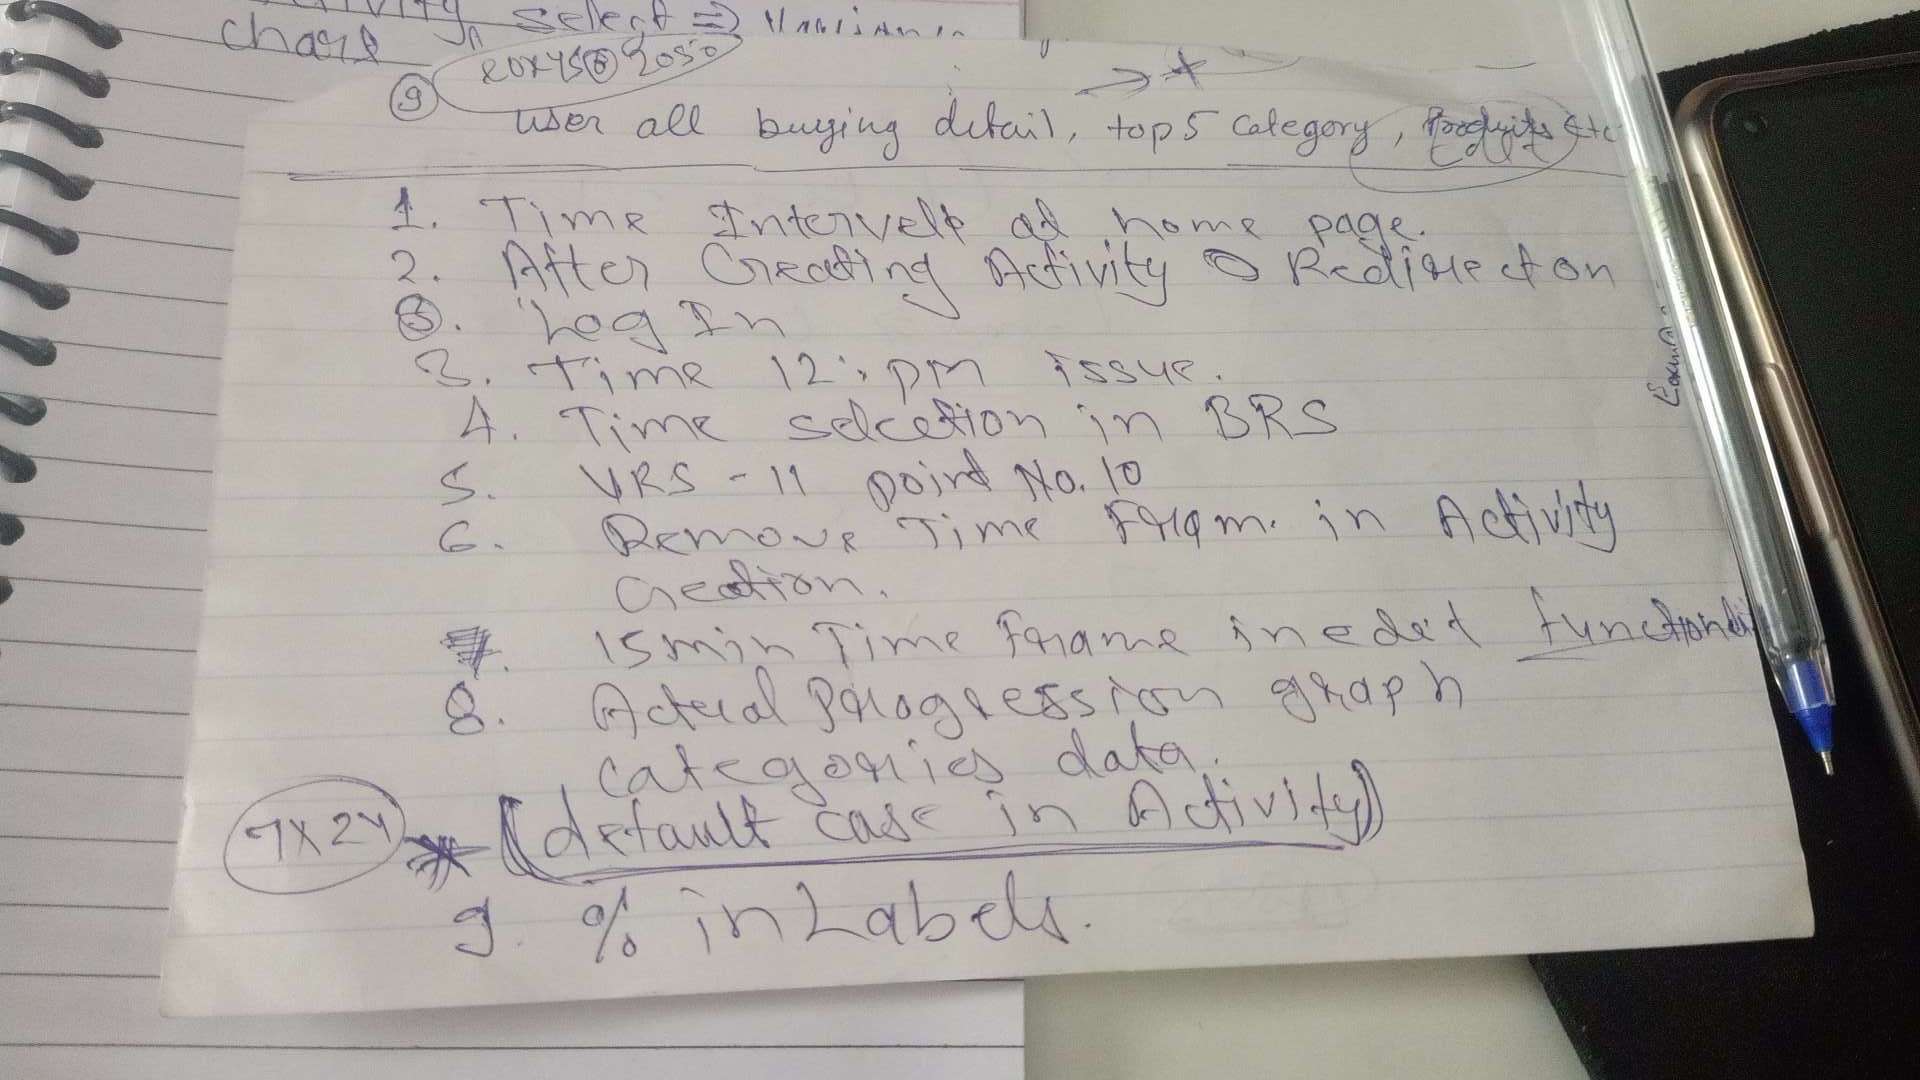 select =>
chart
9
user all buying detail, top 5 category, Products etc
1. Time Intervels at home page.
2. After Creating Activity Redirection
3. Log In
3. Time 12: pm issue.
4. Time selcetion in BRS
5. VRS - 11 point No. 10
6. Remove Time Fram. in Activity
Creation.
7. 15 min Time Frame in edit functionali
8. Actual Progression graph
categories data.
7X24 * (default case in Activity)
9. % in Labels.